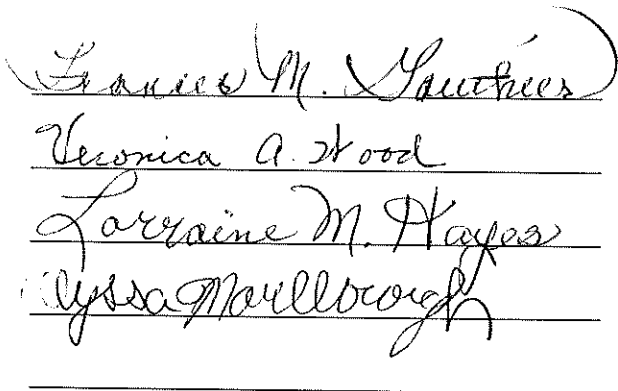 Frances M. Gauthier
Veronica A. Wood
Lorraine M. Hayes
Alyssa Marlborough